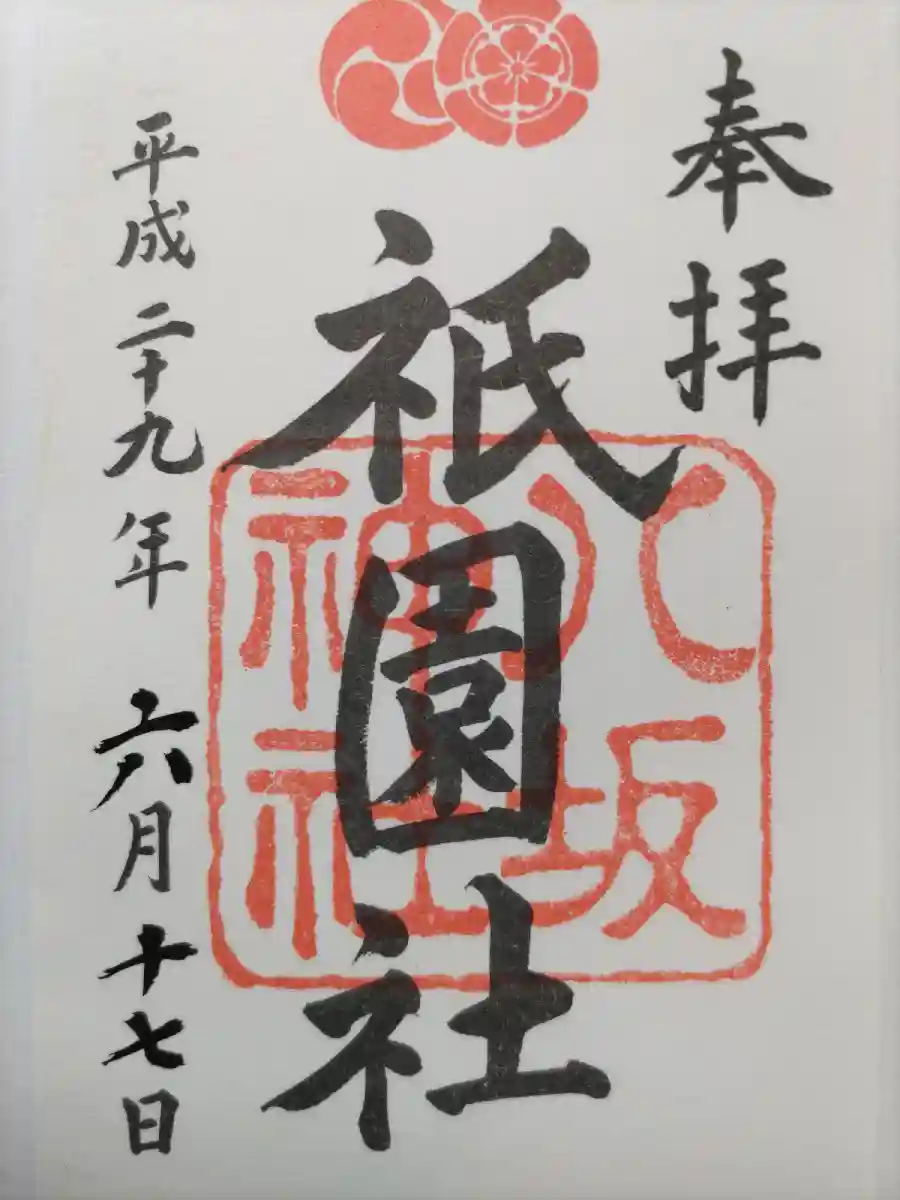 奉拝
八坂
神社
祇園社
平成二十九年六月十七日